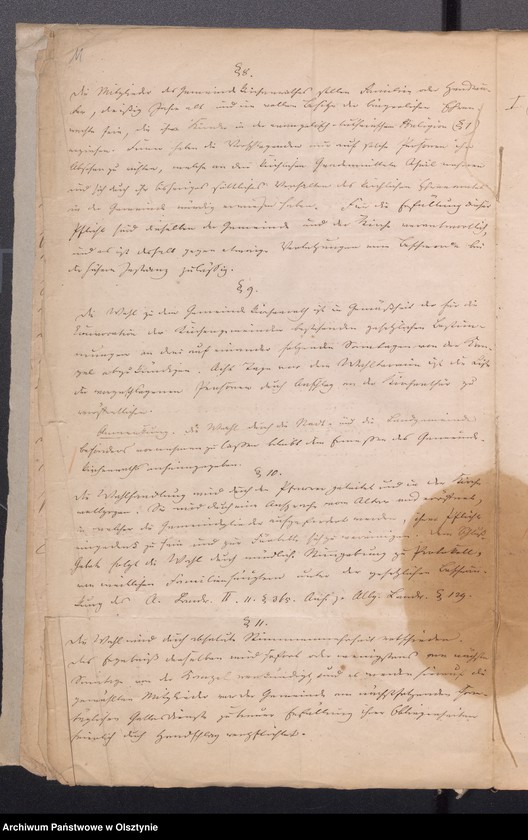 § 8.
Die Mitglieder des Gemeinde Kirchenrathes sollen Familien oder Hausvä-
ter, dreißig Jahr alt und im vollen Besitze der bürgerlichen Ehren-
rechte sein, die ihre Kinder in der evangelisch-lutherischen Religion (§ 1)
erziehen. haben die Vorschlagenden nur auf solche Personen ihr
Absehen zu richten, welche an den kirchlichen Gnadenmitteln Theil nehmen
und sich durch ihr bisheriges sittliches Verhalten des kirchlichen Ehrenamtes
in der Gemeinde würdig erwiesen haben. Für die Erfüllung dieser
Pflicht sind dieselben der Gemeinde und der Kirche verantwortlich,
und es ist deshalb gegen etwaige Verletzungen eine Beschwerde bei
der höhern Instanz zulässig.
§ 9.
Die Wahl zu dem Gemeinde Kirchenrath ist in Gemäßheit der für die
Convocation der Kirchengemeinden bestehenden gesetzlichen Bestim-
mungen an drei auf einander folgenden Sonntagen von der Kan-
zel abzukündigen. Acht Tage vor dem Wahltermin ist die Liste
der vorgeschlagenen Personen durch Anschlag an der Kirchenthür zu
veröffentlichen.
Anmerkung. die Wahl durch die Stadt- und die Landgemeinde
besonders vornehmen zu lassen bleibt dem Ermessen des Gemeinde-
kirchenraths anheimgegeben.
§ 10.
Die Wahlhandlung wird durch die Pfarrer geleitet und in der Kirche
vollzogen. Sie wird durch eine Ansprache vom Altar aus eröffnet,
in welcher die Gemeindeglieder aufgefordert werden, ihrer Pflicht
eingedenk zu sein und zur Fürbitte sich zu vereinigen. Dem Schluß
Gebet folgt die Wahl durch mündliche Stimmgebung zu Protokoll,
von sämtlichen Familienhäuptern unter der gesetzlichen Beschrän-
kung des A. Landr. II. 11. § 365. Anh. zu Allg. Landr. § 129.
§ 11.
Die Wahl wird durch absolute Stimmenmehrheit entschieden.
Das Ergebniß derselben wird sofort oder wenigstens am nächsten
Sonntage von der Kanzel verkündigt, und es werden hierauf die
gewählten Mitglieder vor der Gemeinde am nächstfolgenden Sonn-
täglichen Gottesdienste zu treuer Erfüllung ihrer Obliegenheiten
feierlich durch Handschlag verpflichtet.
Archiwum Państwowe w Olsztynie